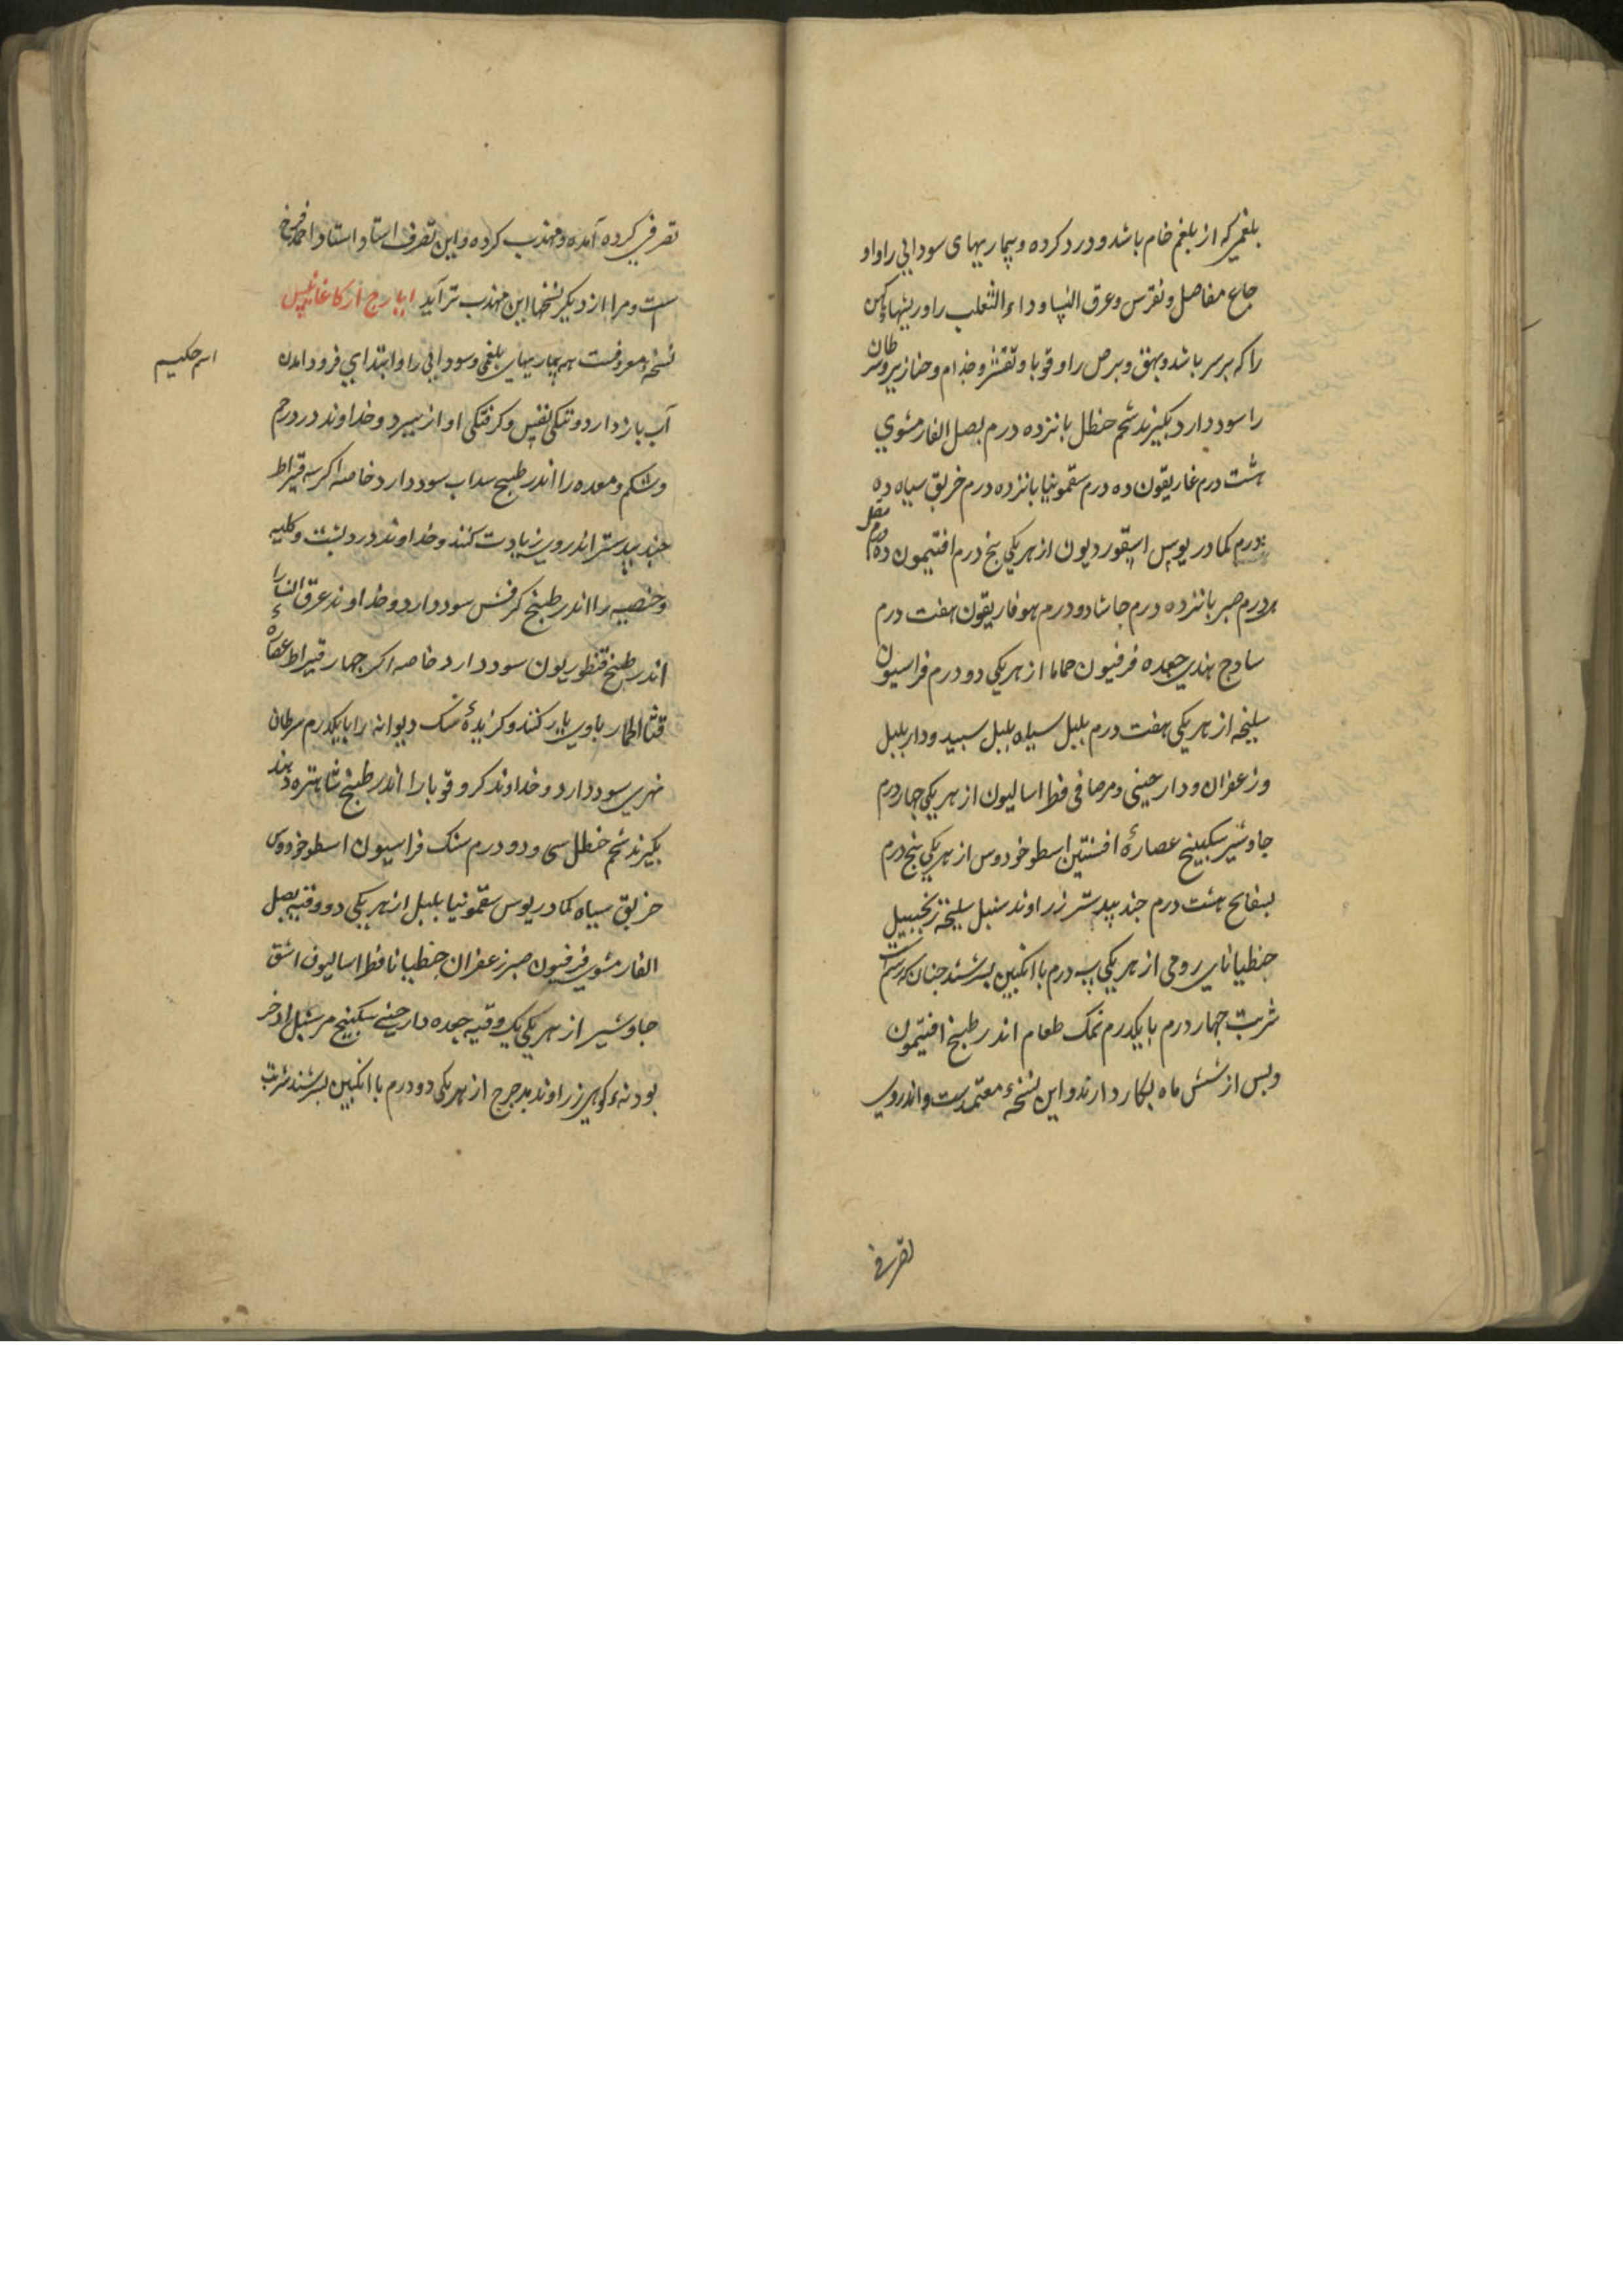 بلغمی که از بلغم خام باشد و درد کرده و بیماریهای سودایی را و او
جاع مفاصل و نقرس و عرق النسا و داء الثعلب را و ریشهاء کهن
را که بر سر باشد و بهق و برص را و قوبا و تقشر و جذام و خنازیر و سرطان
را سود دارد بکیرند شحم حنظل بانزده درم بصل الفار مشوی
هشت درم غاریقون ده درم سقمونیا بانزده درم خربق سیاه ده
درم کمادریوس اسقوردیون از هر یکی بنج درم افتیمون ده درم مقل
درم صبر بانزده درم حاشا دو درم هوفاریقون هفت درم
ساوج هندی جعده فرفیون حماما از هر یکی دو درم فراسیون
سلیخه از هر یکی هفت درم بلبل سیاه بلبل سبید و دار بلبل
و زعفران و دار حینی و مر صافی فطر اسالیون از هر یکی جهار درم
جاوشیر سکبینج عصارهٔ افسنتین اسطوخودوس از هر یکی بنج درم
بسفایج هشت درم جند بیدستر زراوند سنبل سلیخه زنجبیل
جنطیانای رومی از هر یکی سه درم با انکبین بسرشند جنان که رسم است
شربت جهار درم با یکدرم نمک طعام اندر طبیخ افتیمون
و بس از شش ماه بکار دارند و این نسخهٔ معتمدست و اندروی
تصرفی
تصرفی کرده آمده و مهذب کرده و این تصرف استاد استاد احمد فرخ
است و مرا از دیکر نسخها این مهذب تر آید ایارج ارکاغانیس
نسخهٔ معروفست همه بیماریهای بلغمی و سودایی را و ابتدای فرود آمدن
اسم حکیم
آب بازدارد و تنکی نفس و کرفتکی اواز ببرد و خداوند درد رحم
و شکم و معده را اندر طبیخ سداب سود دارد خاصه اکر سه قیراط
جند بیدستر اندر وی زیادت کنند و خداوند درد بشت و کلیه
و خصیه را اندر طبیخ کرفس سود دارد و خداوند عرق النسا را
اندر طبیخ قنطوریون سود دارد خاصه اکر جهار قیراط عصاره
قثاء الحمار با وی یار کنند و کزیدهٔ سک دیوانه را با یکدرم سرطان
نهری سود دارد و خداوند کر و قوبا را اندر طبیخ شاهتره دهند
بکیرند شحم حنظل سی و دو درم سنک فراسیون اسطوخودوس
خربق سیاه کمادریوس سقمونیا بلبل از هر یکی دو وقیه بصل
الفار مشوی فرفیون صبر زعفران جنطیانا فطر اسالیون اشق
جاوشیر از هر یکی یک وقیه جعده دار حینی سکبینج مر سنبل اذخر
بودنهٔ کوهی زراوند مدحرج از هر یکی دو درم با انکبین بسرشند شربت